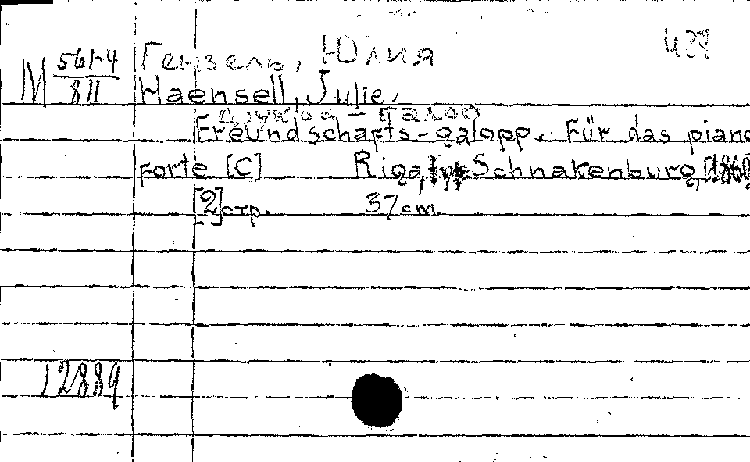 М 561-4/811 Гензель, Юлия 429
Haensell, Julie.
Дружба - галоп
Freundschafts-galopp. Für das piano
forte [C] Riga, typ. Schnakenburg, [1860
[2] стр. 37 cm.
12889